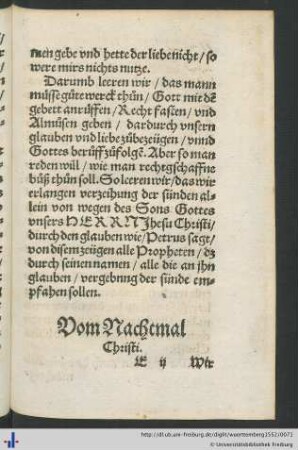 men gebe vnd hette der liebe nicht / so
were mirs nichts nutze.
Darumb leeren wir / das mann
müsse gůte werck thůn / Gott mit dē
gebett anrůffen / Recht fasten / vnd
Almůsen geben / dardurch vnsern
glauben vnd liebe zůbezeügen / vnnd
Gottes berůff zůfolgē. Aber so man
reden will / wie man rechtgschaffne
bůß thůn soll. So leren wir / das wir
erlangen verzeihung der sünden al-
lein von wegen des Sons Gottes
vnsers HERRN Jhesu Christi /
durch den glauben wie / Petrus sagt /
von disem zeügen alle Propheten / dz
durch seinen namen / alle die an jhn
glauben / vergebnng der sünde em-
pfahen sollen.
Vom Nachtmal
Christi.
E ij Wir
http://dl.ub.uni-freiburg.de/diglit/wuerttemberg1552/0071
Universitätsbibliothek Freiburg